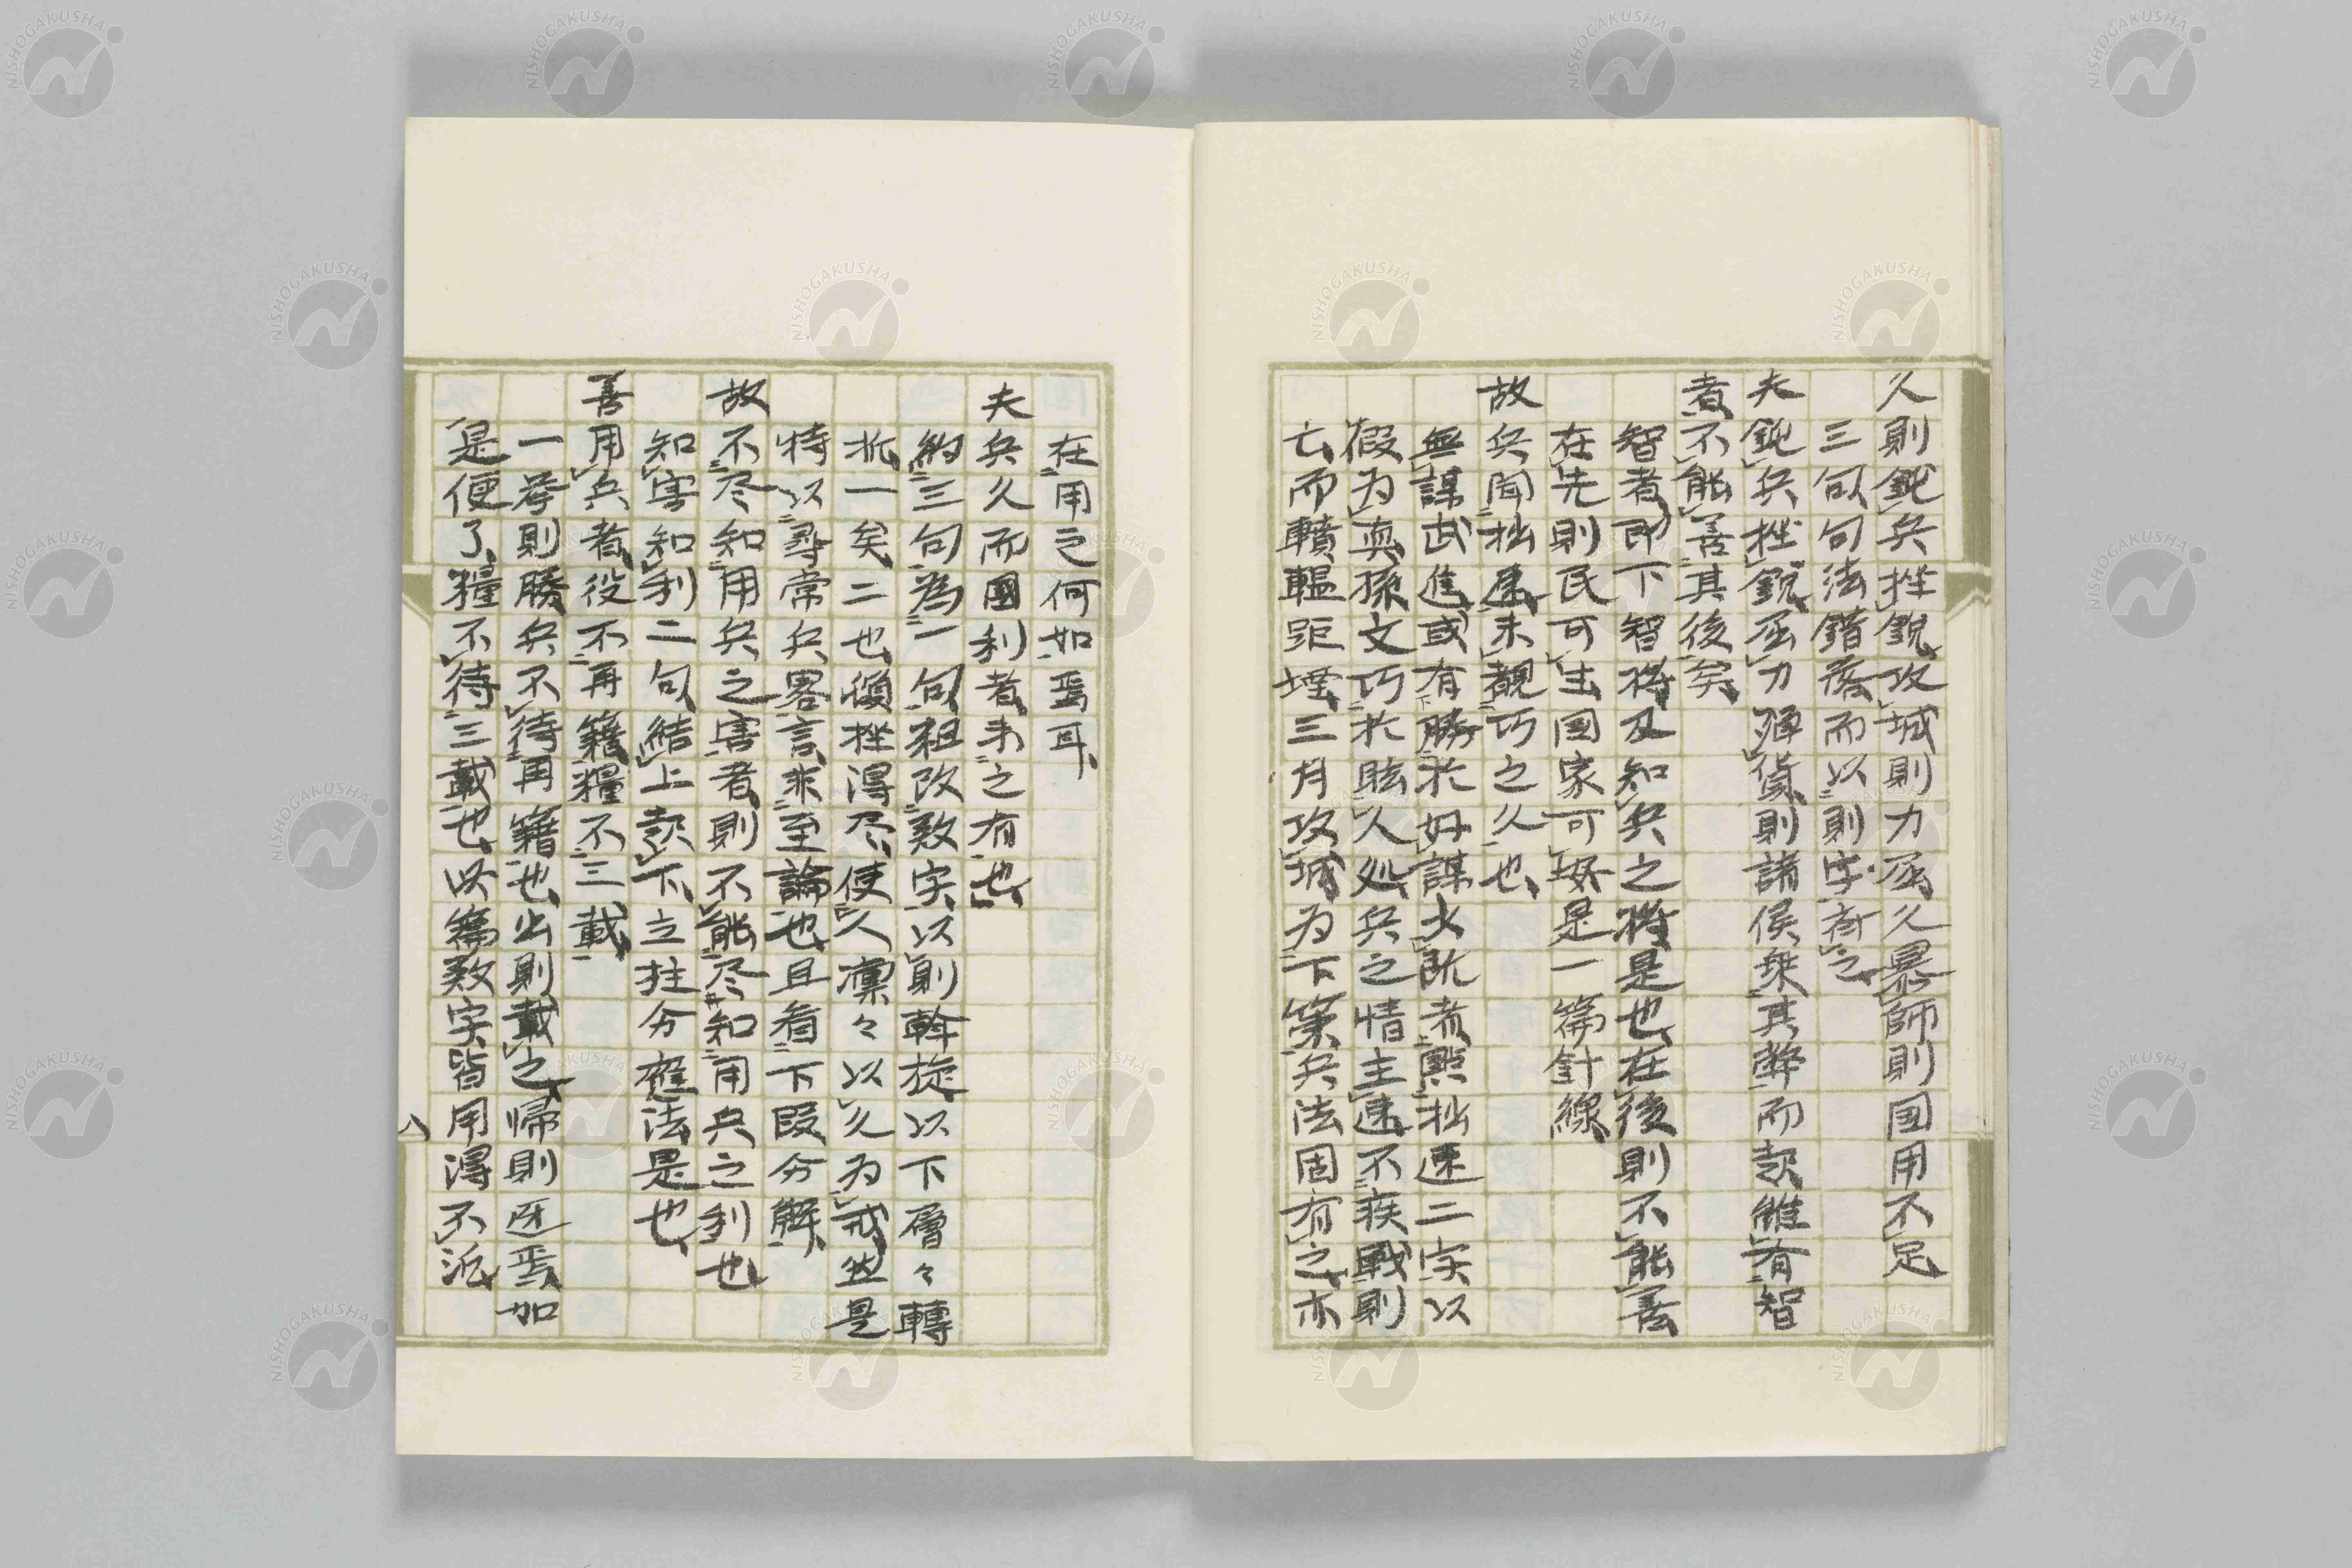 久則鈍兵挫鋭攻城則力屈久暴師則国用不足
三句句法錯落而以則字斉之
夫鈍兵挫鋭屈力殫貨則諸侯乗其弊而起雖有智
者不能善其後矣
智者即下智将及知兵之将是也在後則不能善
在先則民可生国家可安是一篇針線
故兵聞拙速未覩巧之久也
無謀武進或有勝於好謀少断者異拙速二字以
仮为真孫文巧於眩人処兵之情主速不疾戦則
亡而轒轀距堙三月攻城为下策兵法固有之亦
在用之何如焉耳
夫兵久而國利者未之有也
約三句為一句粗改数字以則斡旋以下層々轉
折一矣二也頓挫得尽使人凜々以久为戒然是
特以尋常兵畧言未至論也且看下段分解
故不尽知用兵之害者則不能尽知用兵之利也
知害知利二句結上起下立柱分應法是也
善用兵者役不再籍糧不三載
一挙則勝兵不待再籍也出則載之帰則迓焉加
是便了糧不待三載也此篇数字皆用得不泛
八
NISHOGAKUSHA